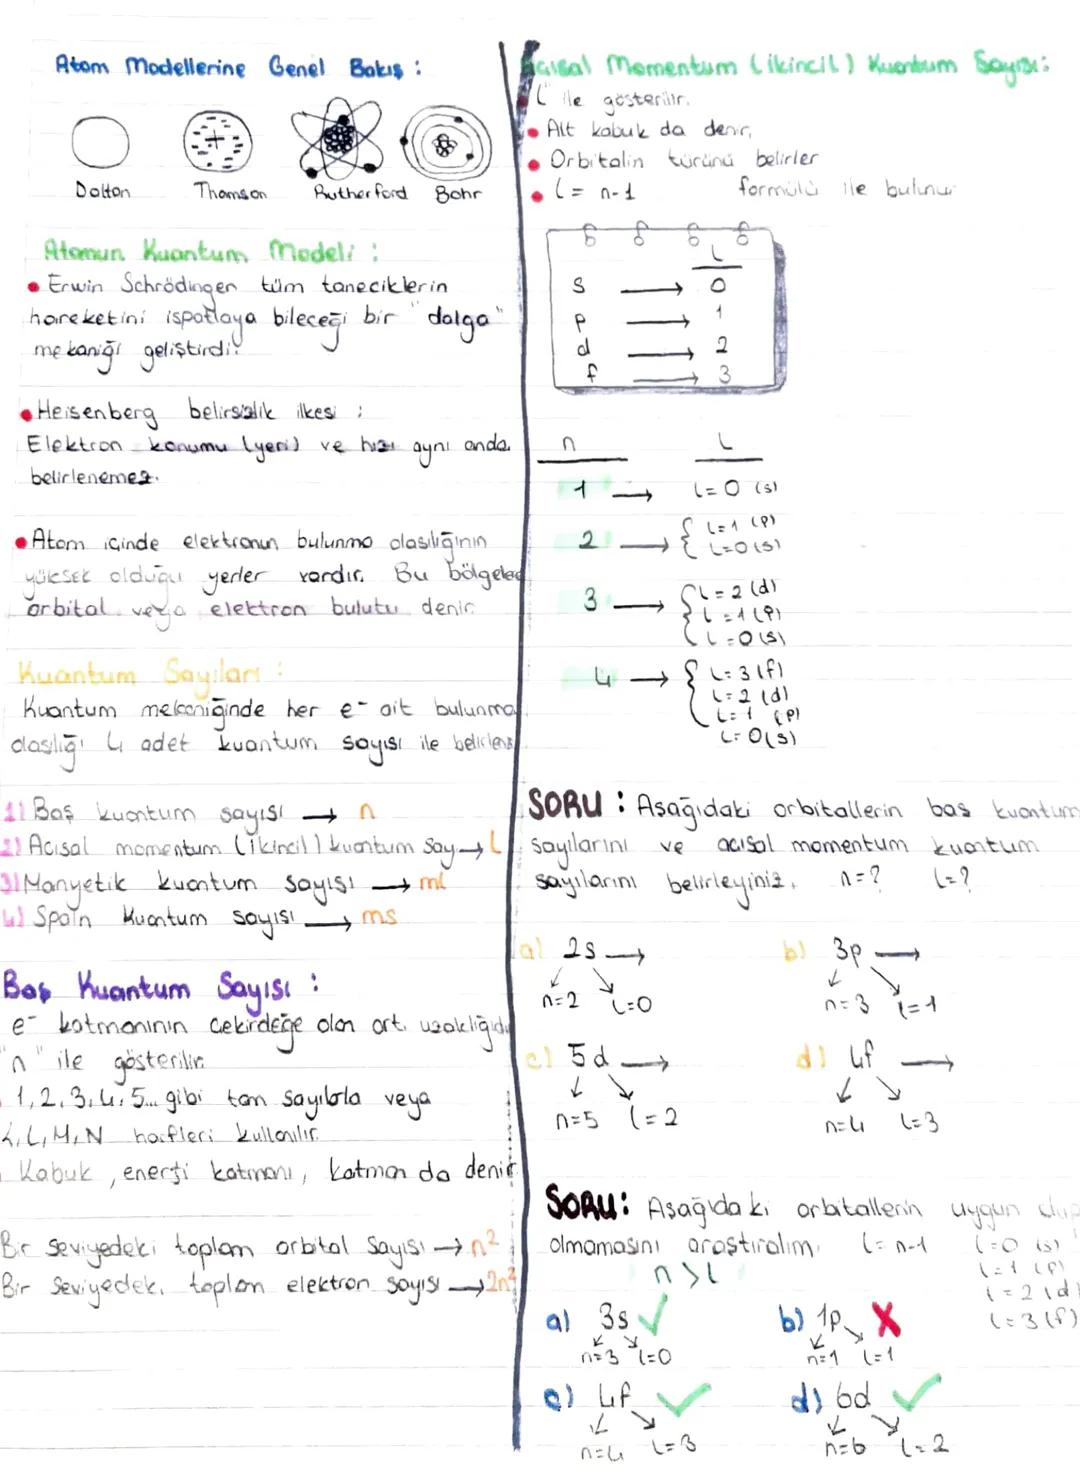 Atom Modellerine Genel Bakış :
Dalton Thomson Rutherford Bohr
Atomun Kuantum Modeli :
• Erwin Schrödinger tüm taneciklerin
hareketini ispatlaya bileceği bir "dalga"
mekaniği geliştirdi.
• Heisenberg belirsizlik ilkesi :
Elektron konumu (yeri) ve hızı aynı anda
belirlenemez.
• Atom içinde elektronun bulunma olasılığının
yüksek olduğu yerler vardır. Bu bölgelere
orbital veya elektron bulutu denir.
Kuantum Sayıları :
Kuantum mekaniğinde her e⁻ ait bulunma
olasılığı 4 adet kuantum sayısı ile belirlenir
1) Baş kuantum sayısı → n
2) Acısal momentum (ikincil) kuantum say → l
3) Manyetik kuantum sayısı → ml
4) Spain Kuantum sayısı → ms
Baş Kuantum Sayısı :
e⁻ katmanının çekirdeğe olan ort. uzaklığıdı
"n" ile gösterilir.
1, 2, 3, 4, 5... gibi tam sayılarla veya
K, L, M, N harfleri kullanılır.
Kabuk, enerji katmanı, katman da denir
Bir seviyedeki toplam orbital sayısı → n²
Bir seviyedek. toplam elektron sayısı → 2n²
Acısal Momentum (ikincil) Kuantum Sayısı:
L ile gösterilir.
• Alt kabuk da denir,
• Orbitalin türünü belirler
• l = n-1 formülü ile bulunur
L
s → 0
p → 1
d → 2
f → 3
n L
1 → l=0 (s)
2 → { l=1 (p)
l=0 (s)
3 → { l=2 (d)
l=1 (p)
l=0 (s)
4 → { l=3 (f)
l=2 (d)
l=1 (p)
l=0 (s)
SORU : Aşağıdaki orbitallerin baş kuantum
sayılarını ve acısal momentum kuantum
sayılarını belirleyiniz. n=? l=?
a) 2s → b) 3p →
n=2 l=0 n=3 l=1
c) 5d → d) 4f →
n=5 l=2 n=4 l=3
SORU: Aşağıdaki orbitallerin uygun olup
olmamasını araştıralım. l= n-1 l=0 (s)
n > l l=1 (p)
l=2 (d)
a) 3s ✓ b) 1p X l=3 (f)
n=3 l=0 n=1 l=1
c) 4f ✓ d) 6d ✓
n=4 l=3 n=6 l=2